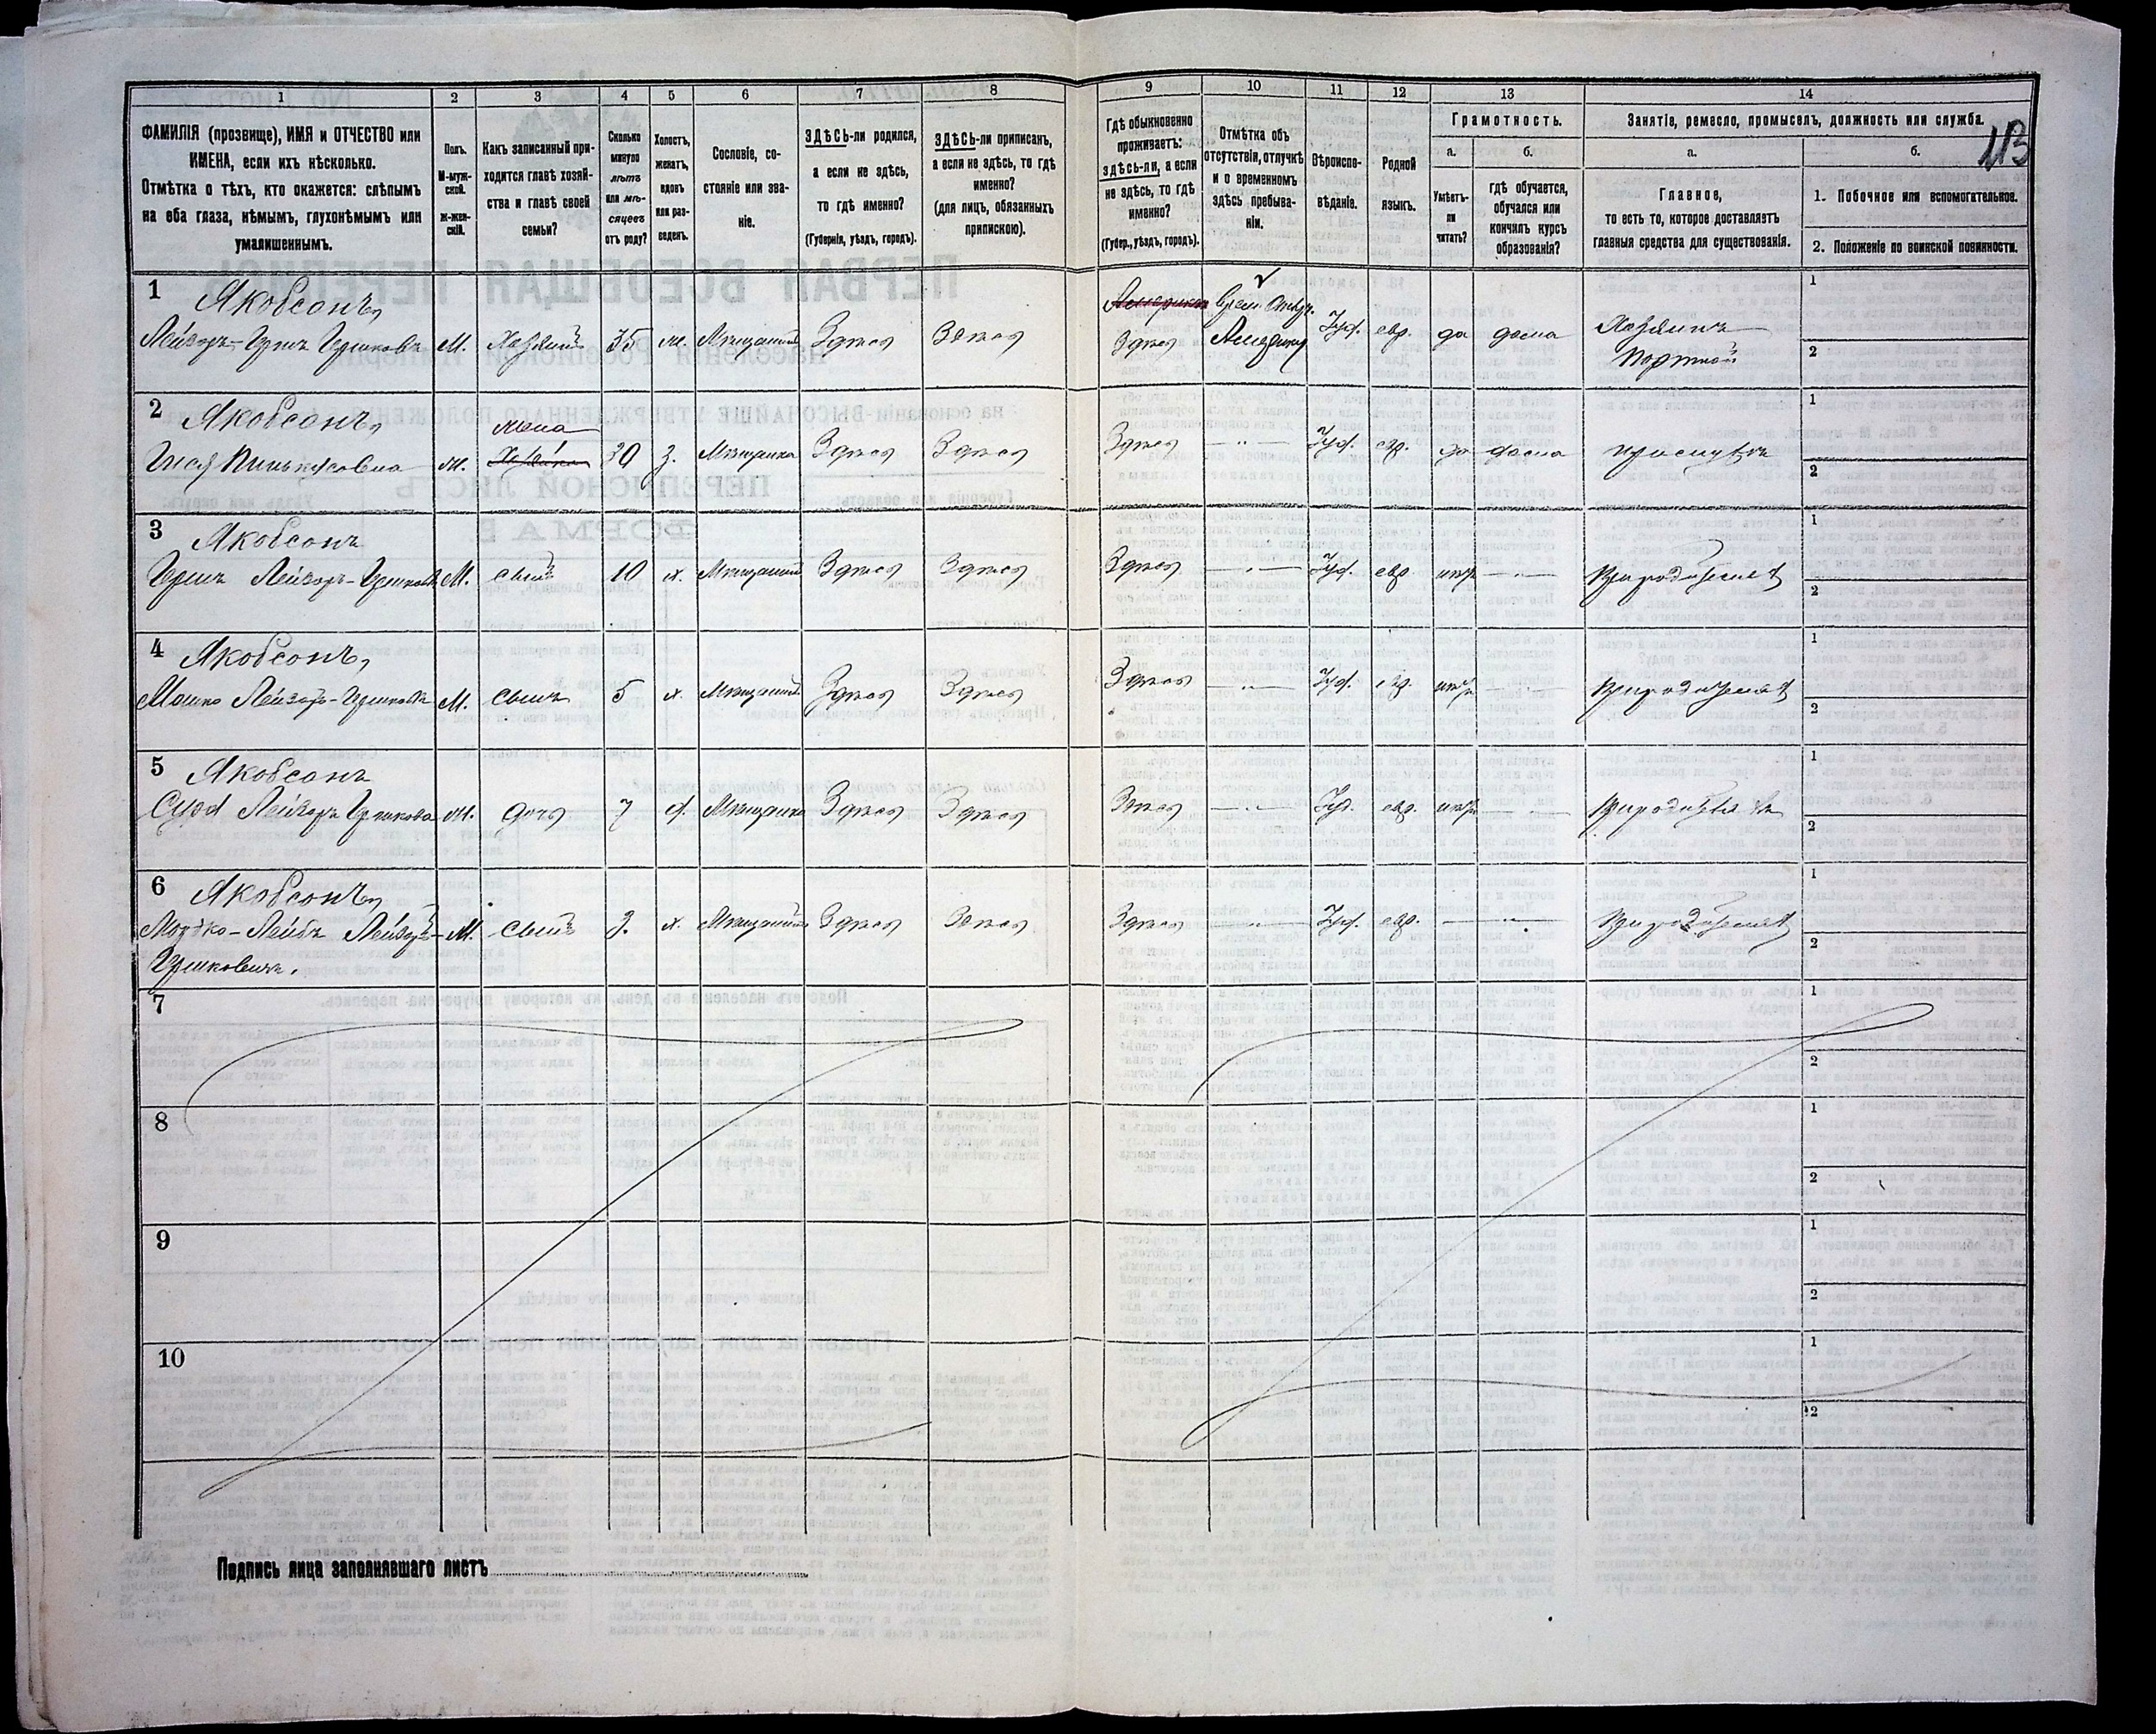 1 2 3 4 5 6 7 8 9 10 11 12 13 14
ФАМИЛІЯ (прозвище), ИМЯ и ОТЧЕСТВО или
ИМЕНА, если ихъ нѣсколько.
Отмѣтка о тѣхъ, кто окажется: слѣпымъ
на оба глаза, нѣмымъ, глухонѣмымъ или
умалишеннымъ.
Полъ.
М-муж-
ской.
Ж-жен-
скій.
Какъ записанный при-
ходится главѣ хозяй-
ства и главѣ своей
семьи?
Сколько
минуло
лѣтъ
или мѣ-
сяцевъ
отъ роду?
Холостъ,
женатъ,
вдовъ
или раз-
веденъ.
Сословіе, со-
стояніе или зва-
ніе.
ЗДѢСЬ-ли родился,
а если не здѣсь,
то гдѣ именно?
(Губернія, уѣздъ, городъ).
ЗДѢСЬ-ли приписанъ,
а если не здѣсь, то гдѣ
именно?
(для лицъ, обязанныхъ
припискою).
Гдѣ обыкновенно
проживаетъ:
здѣсь-ли, а если
не здѣсь, то гдѣ
именно?
(Губер., уѣздъ, городъ).
Отмѣтка объ
отсутствіи, отлучкѣ
и о временномъ
здѣсь пребыва-
ніи.
Вѣроиспо-
вѣданіе.
Родной
языкъ.
Грамотность.
а.
Умѣетъ-
ли
читать?
б.
гдѣ обучается,
обучался или
кончилъ курсъ
образованія?
Занятіе, ремесло, промыселъ, должность или служба.
а.
Главное,
то есть то, которое доставляетъ
главныя средства для существованія.
б.
1. Побочное или вспомогательное.
2. Положеніе по воинской повинности.
1 Якобсонъ, 1
Лейзоръ-Гершъ Гершковъ М. Хозяинъ 35 ж. Мѣщанинъ Здѣсь Здѣсь Здѣсь Америку Іуд. евр. да дома Хозяинъ
Портной 2
2 Якобсонъ, жена 1
Пинькусовна ж. 30 з. Мѣщанка Здѣсь Здѣсь Здѣсь — „ — Іуд. евр. да дома при мужѣ 2
3 Якобсонъ 1
Гершъ Лейзоръ-Гершковъ М. сынъ 10 х. Мѣщанинъ Здѣсь Здѣсь Здѣсь — „ — Іуд. евр. — „ — при родителяхъ 2
4 Якобсонъ, 1
Мошко Лейзоръ-Гершковъ М. сынъ 5 х. Мѣщанинъ Здѣсь Здѣсь Здѣсь — „ — Іуд. евр. — „ — при родителяхъ 2
5 Якобсонъ 1
Лейзоръ Гершкова ж. дочь 7 д. Мѣщанка Здѣсь Здѣсь Здѣсь — „ — Іуд. евр. — „ — при родителяхъ 2
6 Якобсонъ, 1
Мортко-Лейбъ Лейзоръ- М. сынъ 3. х. Мѣщанинъ Здѣсь Здѣсь Здѣсь — „ — Іуд. евр. — — „ — при родителяхъ
Гершковичъ. 2
7 1
2
8 1
2
9 1
2
10 1
2
Подпись лица заполнявшаго листъ